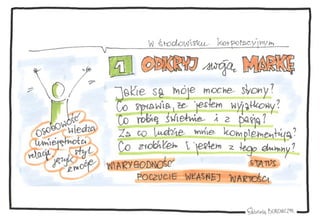 w środowisku korporacyjnym
1 ODKRYJ swoją MARKĘ
Jakie są moje mocne strony?
Co sprawia, że jestem wyjątkowy?
Co robię świetnie i z pasją?
Za co ludzie mnie komplementują?
Co zrobiłem i jestem z tego dumny?
OSOBOWOŚĆ
wiedza
umiejętności
relacje styl
język
emocje
WIARYGODNOŚĆ STATUS
POCZUCIE WŁASNEJ WARTOŚCI